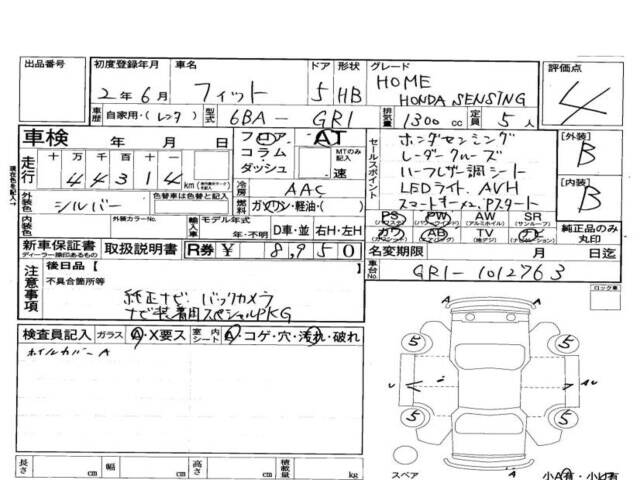 出品番号
初度登録年月 車名 ドア 形状 グレード
評価点
2年6月 フィット 5 HB HOME
HONDA SENSING
4
車歴 自家用・(レンタ) 型式 6BA- GR1 排気量 1300cc 定員 5人
車検 年 月 日
フロア AT
コラム
ダッシュ
MTのみ記入
速
セールスポイント
ホンダセンシング
レーダークルーズ
ハーフレザー調シート
LEDライト AVH
スマートキー×2 Pスタート
[外装]
B
[内装]
B
走行 十万千百十一
44314 km
冷房 AAC
燃料 ガソリン・軽油・( )
外装色 シルバー
色替車は色替と記入
内装色 外装カラーNo.
輸入車 モデル年式
年・不明 D車・並 右H・左H
PS PW AW SR
(パワステ) (パワーウインド) (アルミホイル) (サンルーフ)
カワ AB TV ナビ
純正品のみ丸印
現在色を記入
新車保証書 取扱説明書 R券 ¥ 8,950
ディーラー捺印あるもの
名変期限 月 日迄
車台No. GR1-1012763
注意事項
後日品 [ ]
不具合箇所等
純正ナビ バックカメラ
ナビ装着用スペシャルPKG
ロック車
検査員記入 ガラス A・X要ス 室内シート A・コゲ・穴・汚れ・破れ
ホイルカバーA
A
A
5 5
5 5
A
長さ cm 幅 cm 高さ cm 積載量 kg
スペア
小A有・小U有